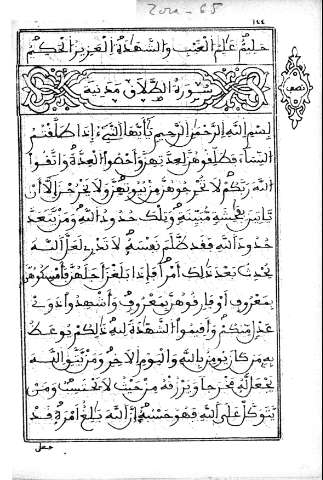 ١٤٤
حليم علم الغيب والشهدة العزيز الحكيم
سورة الطلاق مدنية
بسم الله الرحمن الرحيم يأيها النبيء إذا طلقتم
النساء فطلقوهن لعدتهن وأحصوا العدة واتقوا
الله ربكم لا تخرجوهن من بيوتهن ولا يخرجن إلا أن
ياتين بفحشة مبينة وتلك حدود الله ومن يتعد
حدود الله فقد ظلم نفسه لا تدري لعل الله
يحدث بعد ذلك أمرا فإذا بلغن أجلهن فأمسكوهن
بمعروف أو فارقوهن بمعروف وأشهدوا ذوي
عدل منكم وأقيموا الشهدة لله ذلكم يوعظ
به من كان يومن بالله واليوم الاخر ومن يتق الله
يجعل له مخرجا ويرزقه من حيث لا يحتسب ومن
يتوكل على الله فهو حسبه إن الله بلغ أمره قد
جعل
نصف